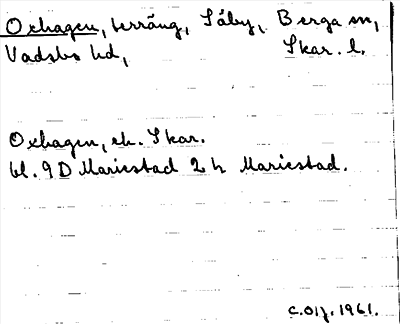 Oxhagen, terräng, Säby, Berga sn,
Vadsbo hd, Skar. l.
Oxhagen, ek. Skar.
bl. 9D Mariestad 2 h Mariestad.
C.Olj. 1961.